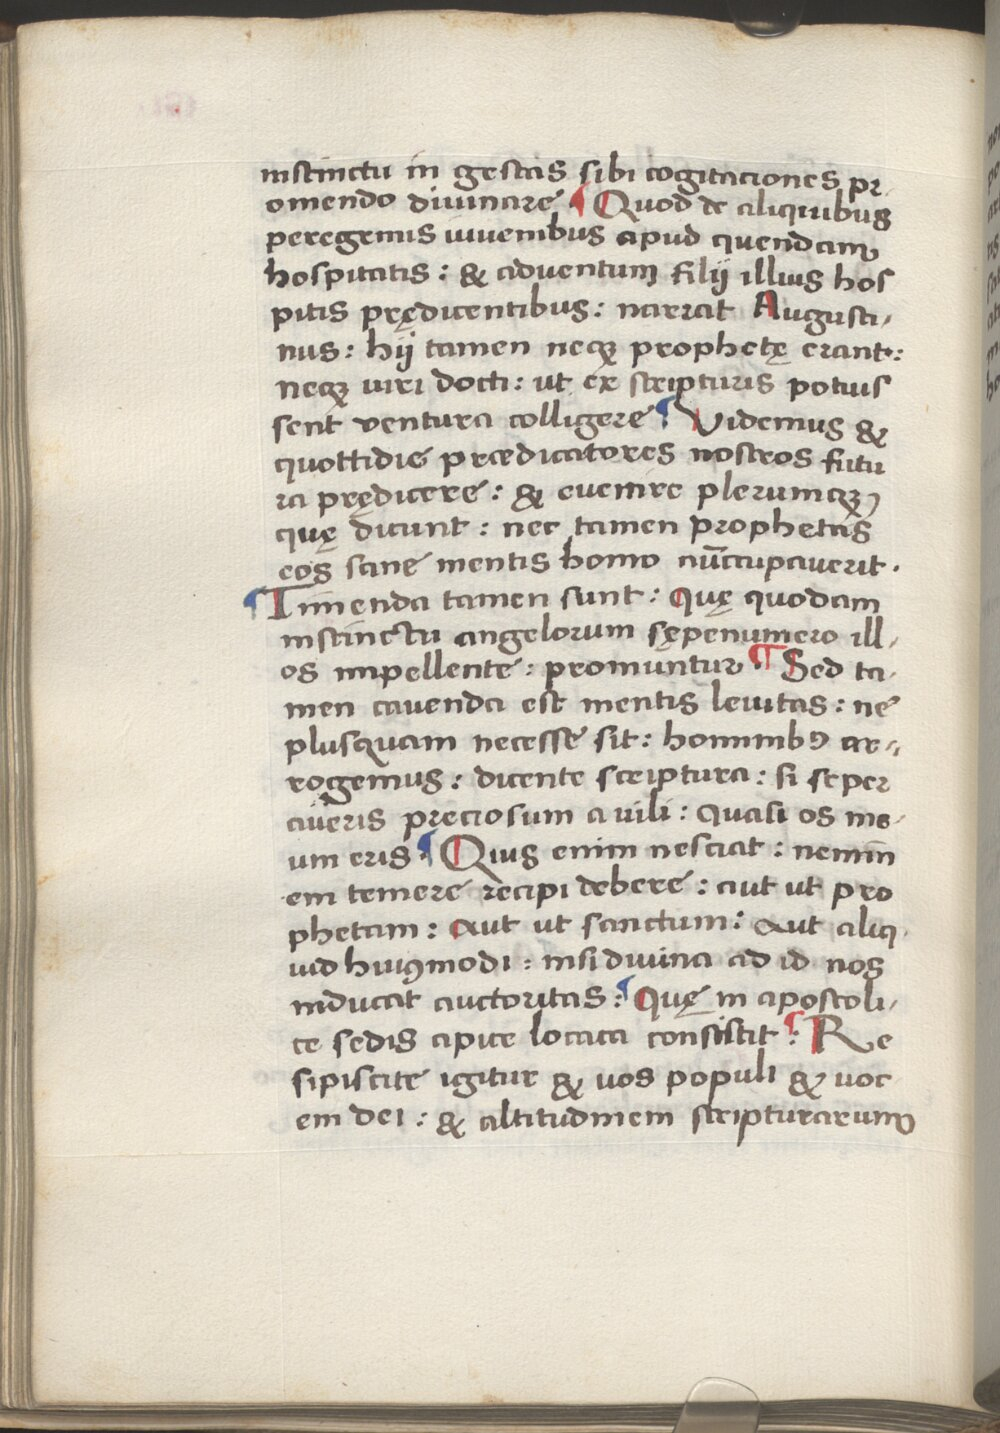 instinctu in gestas sibi cogitaciones pr-
omendo diuinare ¶ Quod de aliquibus
peregrinis iuuenibus apud quendam
hospitatis : & aduentum filij illius hos
pitis prędicentibus : narrat Augusti-
nus : hij tamen neqꝫ prophetę erant :
neqꝫ uiri docti : ut ex scripturis potuis
sent ventura colligere ¶ Videmus &
quottidie prædicatores nostros futu
ra prędicere : & euenire plerumqꝫ
quę dicunt : nec tamen prophetas
eos sane mentis homo nūccupauerit .
¶ Timenda tamen sunt : Quę quodam
instinctu angelorum sępenumero ill-
os impellente : promuntur ¶ Sed ta-
men cauenda est mentis leuitas : ne
plusquam necesse sit : hominibꝰ ar-
rogemus : dicente scriptura : si seper
aueris preciosum a uili : quasi os me-
um eris : ¶ Quis enim nesciat : nemin
em temere recipi debere : aut ut pro
phetam : aut ut sanctum : aut aliq-
uid huiꝰmodi : nisi diuina ad id nos
inducat auctoritas : ¶ Quę in apostoli-
ce sedis apice locata consistit : ¶ Re
sipiscite igitur & uos populi & uoc
em dei : & altitudinem scripturarum